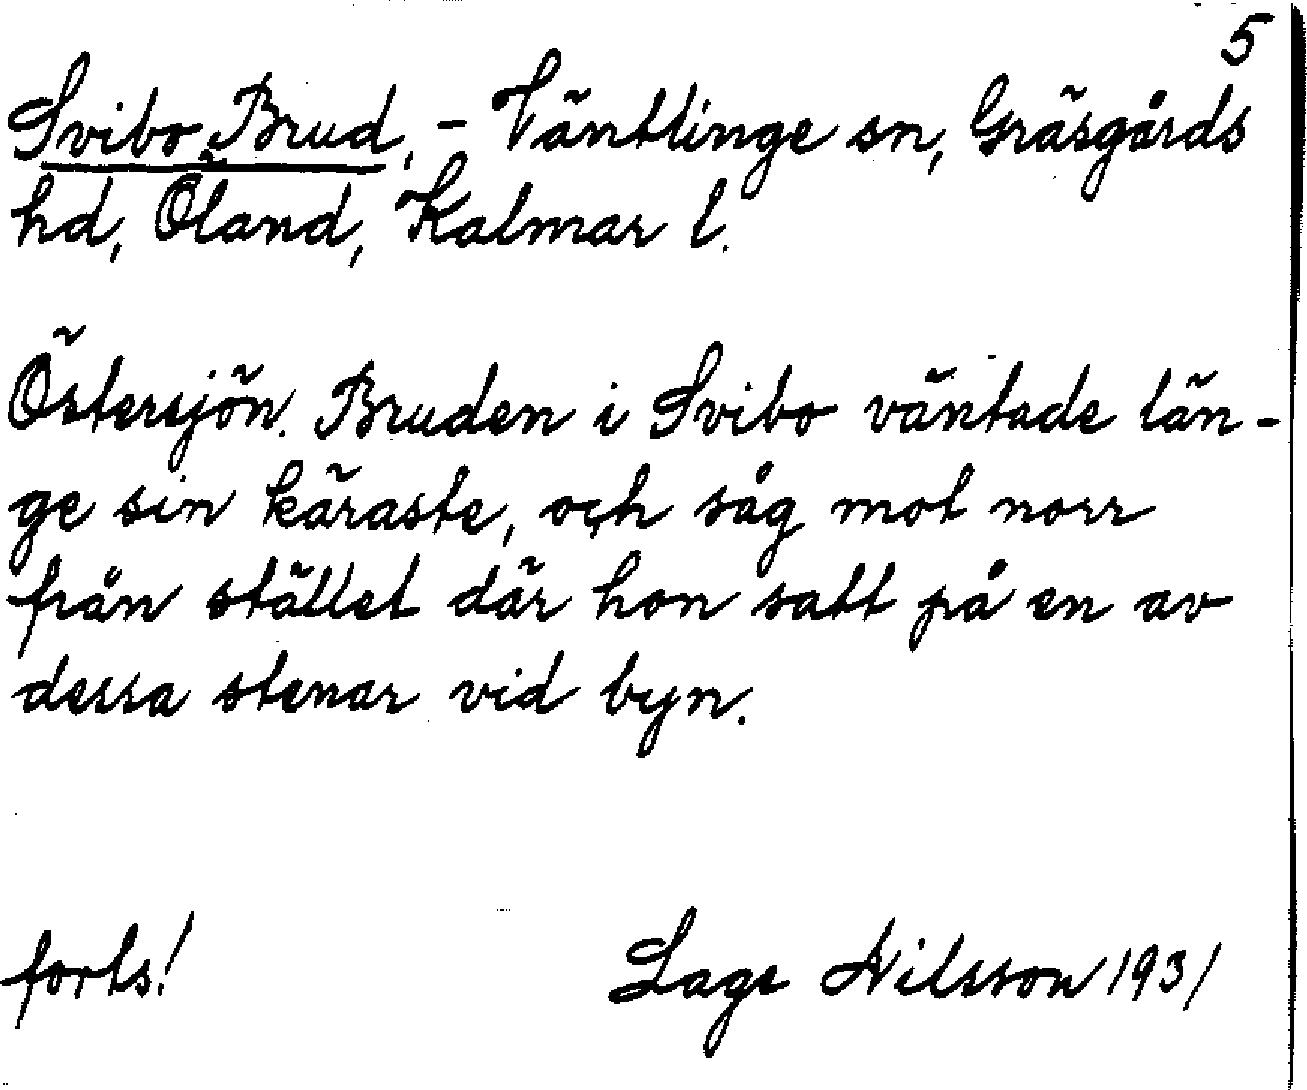 5
Svibo Brud. - Väntlinge sn, Gräsgårds
hd, Öland, Kalmar l.
Östersjön. Bruden i Svibo väntade län-
ge sin käraste, och såg mot norr
från stället där hon satt på en av
dessa stenar vid byn.
forts! Lage Nilsson 1931